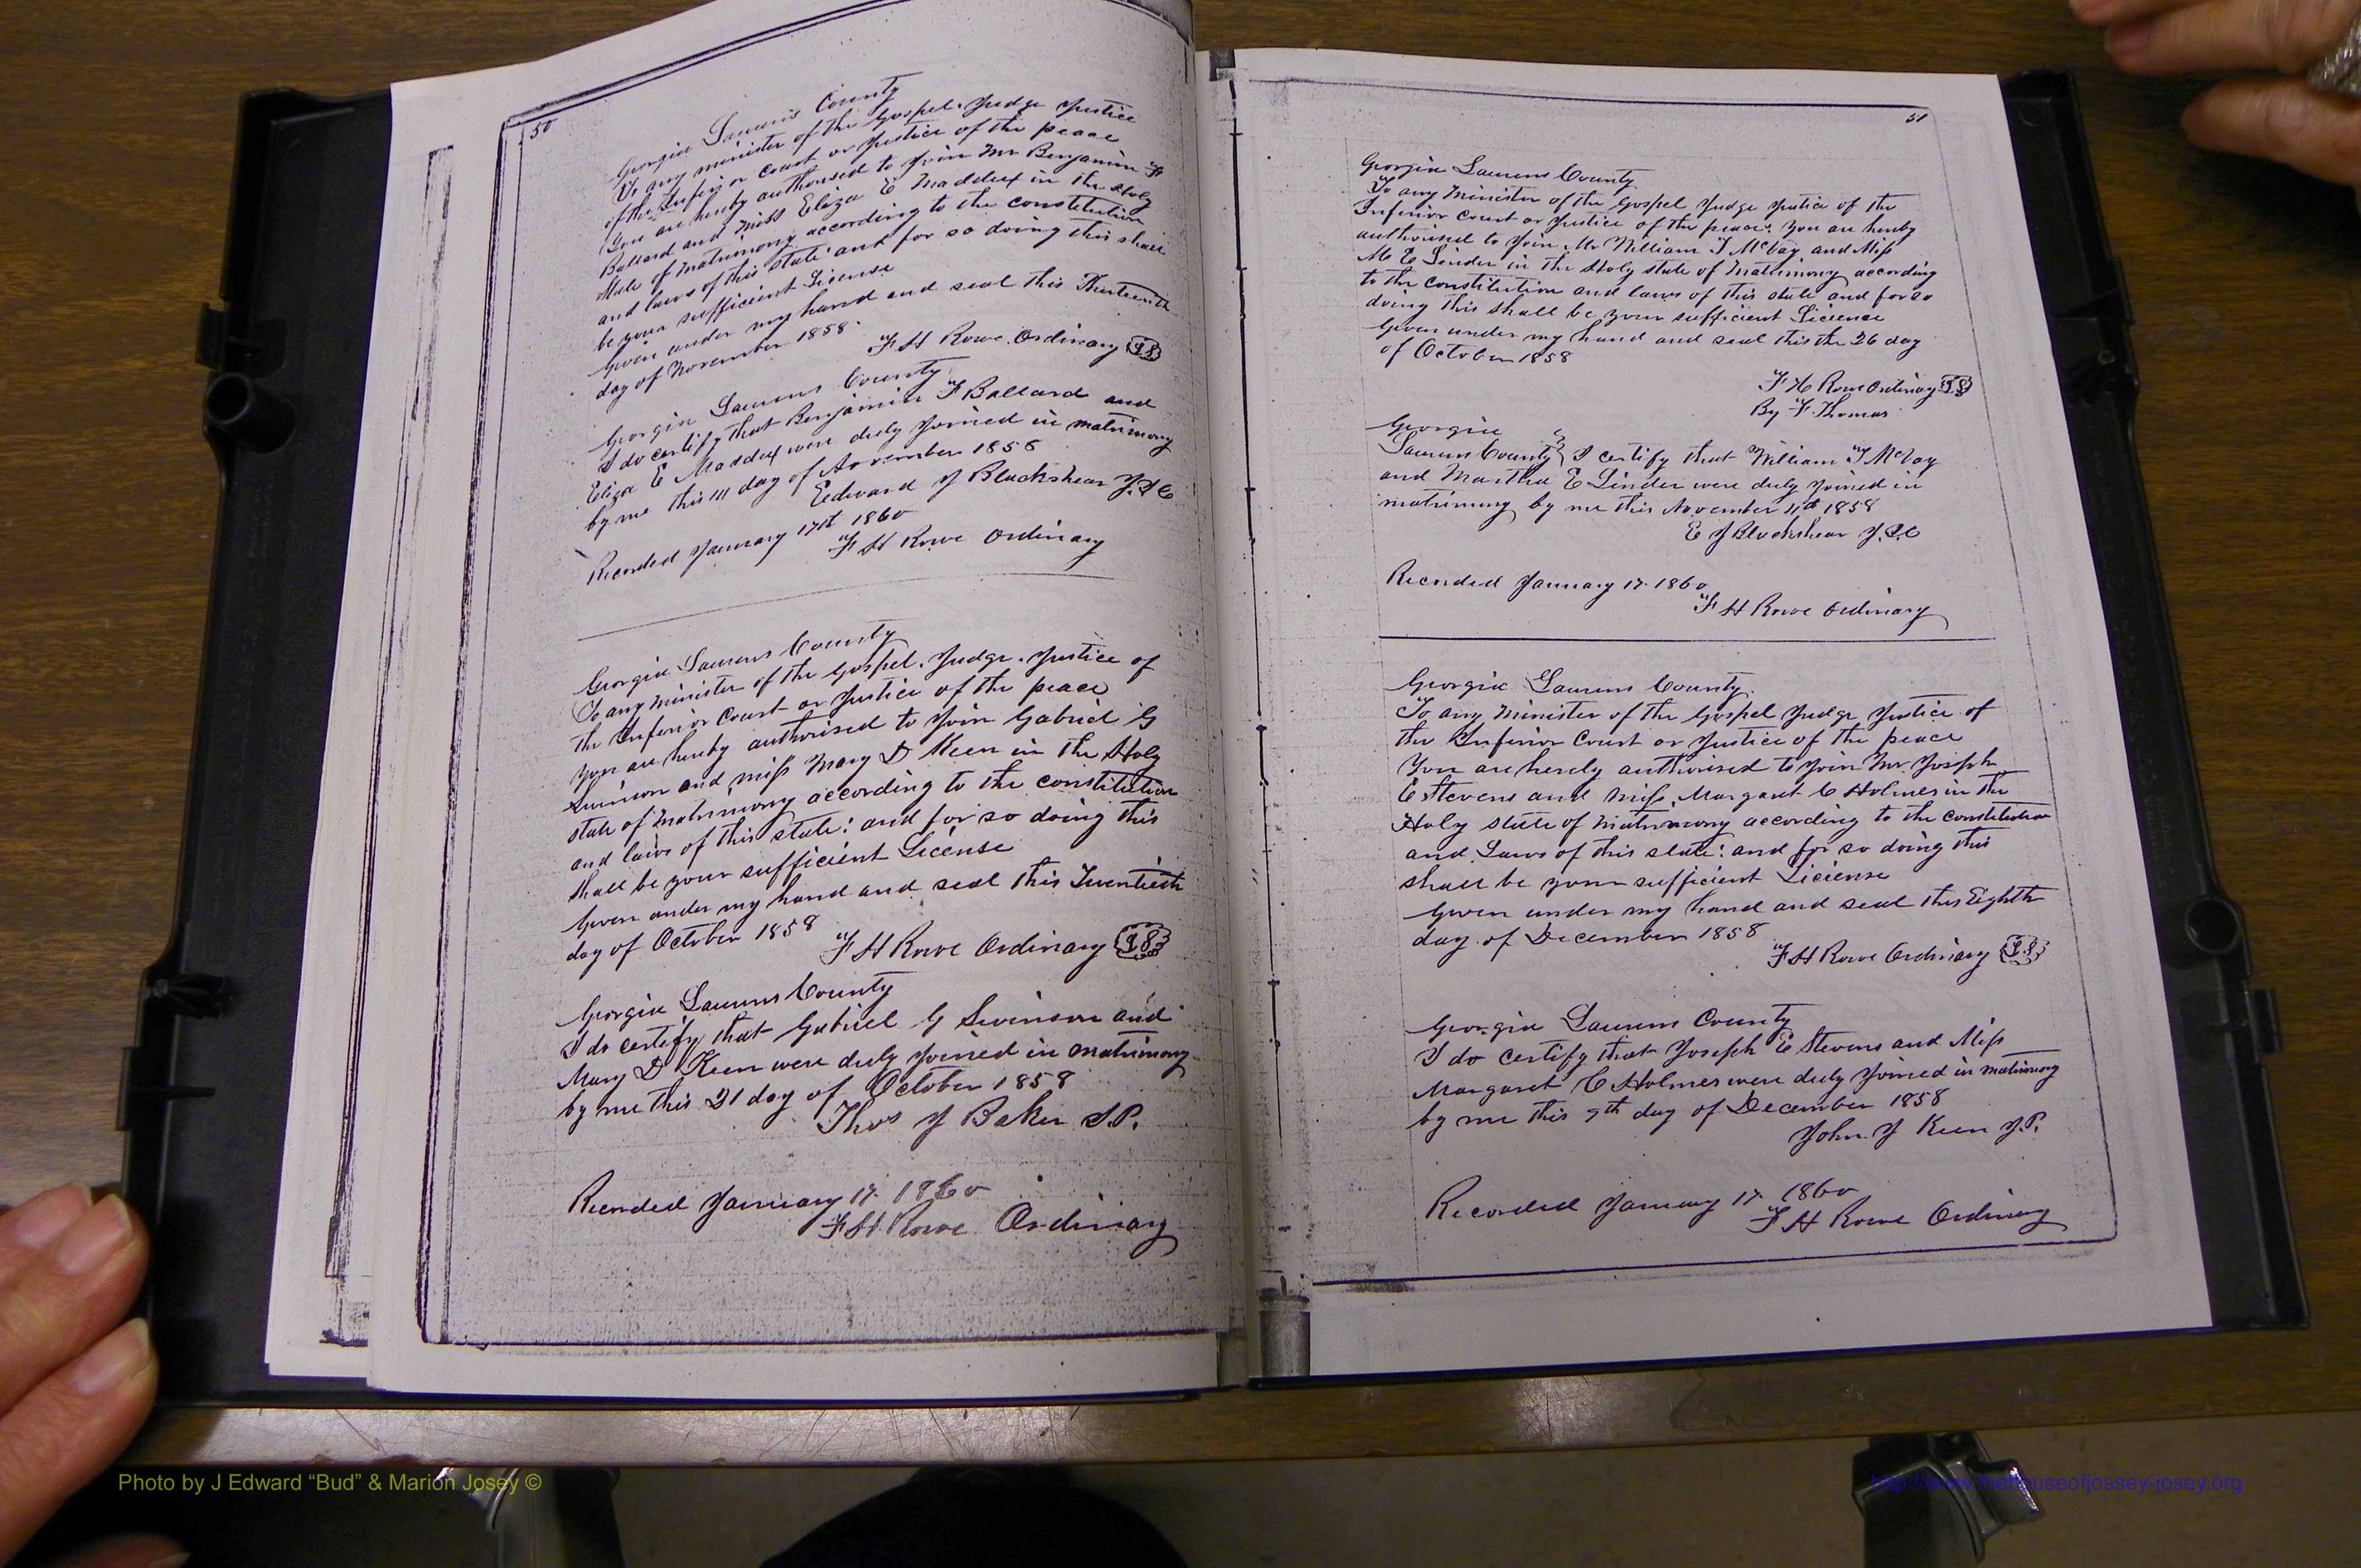 50
Georgia Laurens County
To any minister of the Gospel. Judge Justice
of the Inferior Court or Justice of the peace
You are hereby authorised to Join Mr Benjamin F
Ballard and Miss Eliza E Maddux in the Holy
State of Matrimony according to the constitution
and laws of this State: and for so doing this shall
be your sufficient License
Given under my hand and seal this Thirteenth
day of November 1858.
F H Rowe. Ordinary L S
Georgia Laurens County
I do certify that Benjamin F Ballard and
Eliza E Maddux were duly Joined in matrimony
by me this day of November 1858
Edward J Blackshear J.I.C
Recorded January 17st 1860
F H Rowe Ordinary
Georgia Laurens County
To any minister of the Gospel. Judge. Justice of
the Inferior Court or Justice of the peace
You are hereby authorised to Join Gabriel G
Swinson and miss Mary D Keen in the Holy
state of Matrimony according to the constitution
and laws of this state: and for so doing this
shall be your sufficient License
Given under my hand and seal this Twentieth
day of October 1858
F H Rowe Ordinary L S
Georgia Laurens County
I do certify that Gabriel G Swinson and
Mary D Keen were duly Joined in matrimony
by me this 21 day of October 1858
Thos J Baker J.P.
Recorded January 17. 1860
F H Rowe Ordinary
51
Georgia Laurens County
To any Minister of the Gospel Judge Justice of the
Inferior Court or Justice of the peace. You are hereby
authorised to Join Mr William T McVay and Miss
M E Linder in the Holy state of Matrimony according
to the constitution and laws of this state and for so
doing this shall be your sufficient Licience
Given under my hand and seal this the 26 day
of October 1858
F H Rowe Ordinary L S
By F. Thomas
Georgia
Laurens County I certify that William T McVay
and Martha E Linder were duly Joined in
matrimony by me this November 11th 1858
E J Blackshear J.I.C
Recorded January 17. 1860
F H Rowe Ordinary
Georgia Laurens County.
To any Minister of the Gospel Judge Justice of
the Inferior Court or Justice of the peace
You are hereby authorised to Join Mr. Joseph
E Stevens and Miss Margaret C Holmes in the
Holy state of Matrimony according to the constitution
and Laws of this state: and for so doing this
shall be your sufficient Liciense
Given under my hand and seal this Eighth
day of December 1858
F H Rowe Ordinary L S
Georgia Laurens County
I do certify that Joseph E Stevens and Miss
Margaret C Holmes were duly Joined in matrimony
by me this 9th day of December 1858
John J Keen J.P.
Recorded January 17. 1860
F H Rowe Ordinary
Photo by J Edward “Bud” & Marion Josey ©
http://www.thehouseofjossey-josey.org